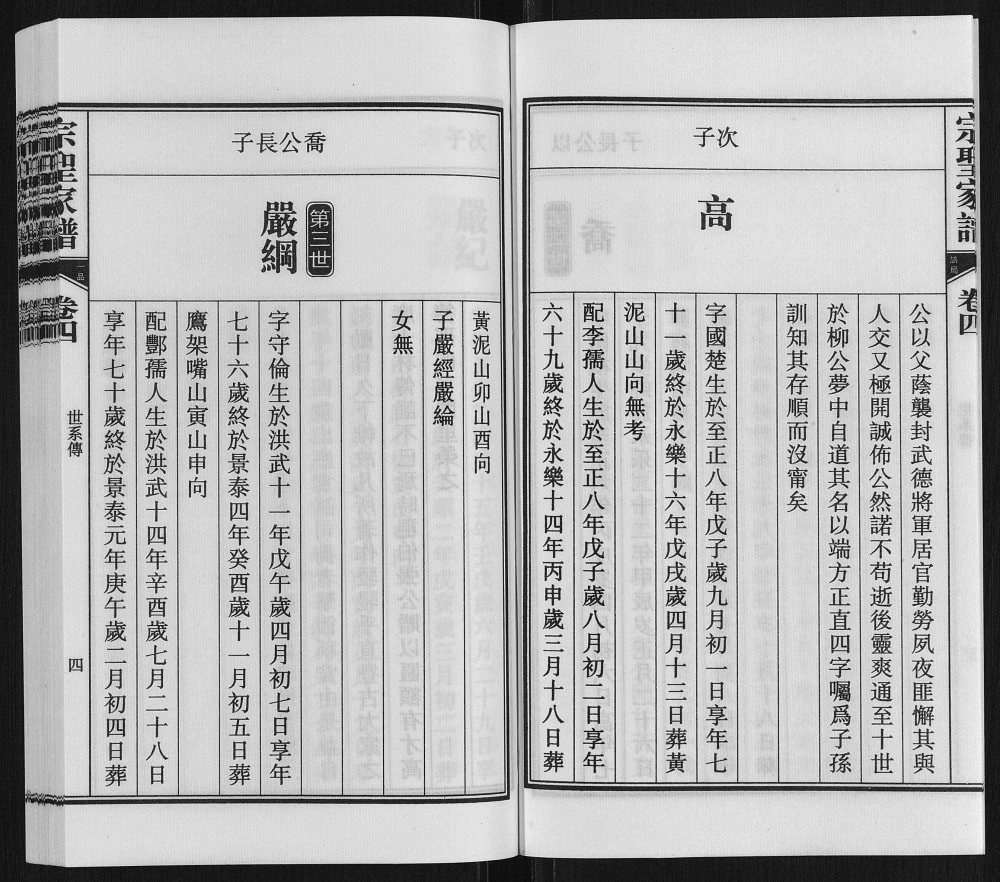 宗聖家譜
卷四
次子
高
公以父蔭襲封武德將軍居官勤勞夙夜匪懈其與
人交又極開誠佈公然諾不苟逝後靈爽通至十世
於柳公夢中自道其名以端方正直四字囑爲子孫
訓知其存順而沒甯矣
字國楚生於至正八年戊子歲九月初一日享年七
十一歲終於永樂十六年戊戌歲四月十三日葬黃
泥山山向無考
配李孺人生於至正八年戊子歲八月初二日享年
六十九歲終於永樂十四年丙申歲三月十八日葬
黃泥山卯山酉向
子嚴經嚴綸
女無
喬公長子
第三世
嚴綱
字守倫生於洪武十一年戊午歲四月初七日享年
七十六歲終於景泰四年癸酉歲十一月初五日葬
鷹架嘴山寅山申向
配酆孺人生於洪武十四年辛酉歲七月二十八日
享年七十歲終於景泰元年庚午歲二月初四日葬
宗聖家譜
一品
卷四
世系傳
四